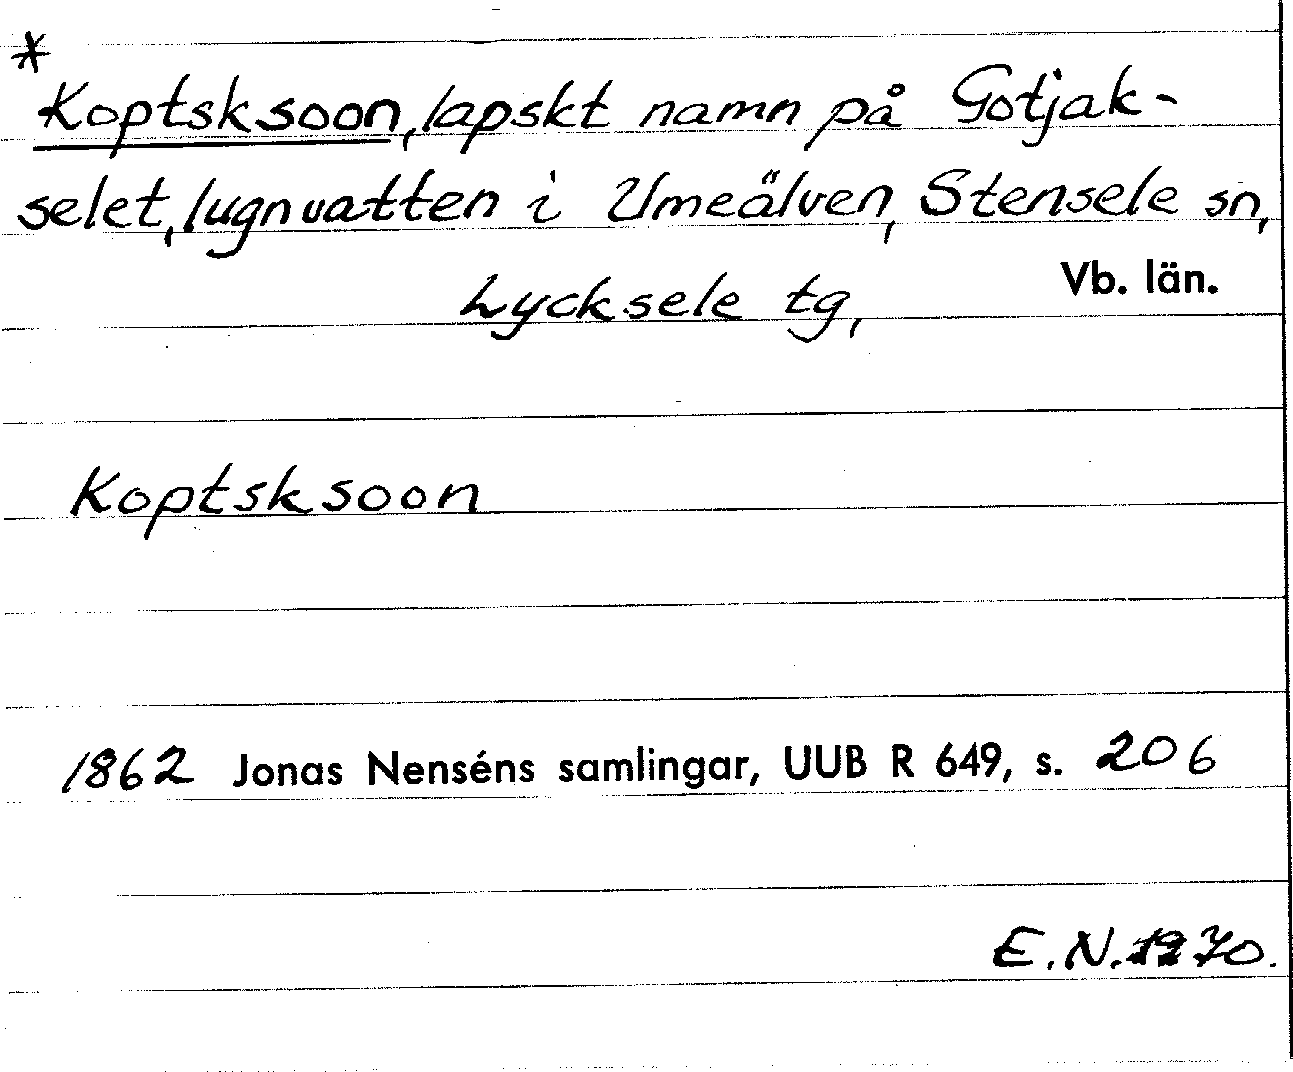 *
Koptsksoon, lapskt namn på Gotjak-
selet, lugnvatten i Umeälven, Stensele sn,
Lycksele tg, Vb. län.
Koptsksoon
1862 Jonas Nenséns samlingar, UUB R 649, s. 206
E.N. 1970.